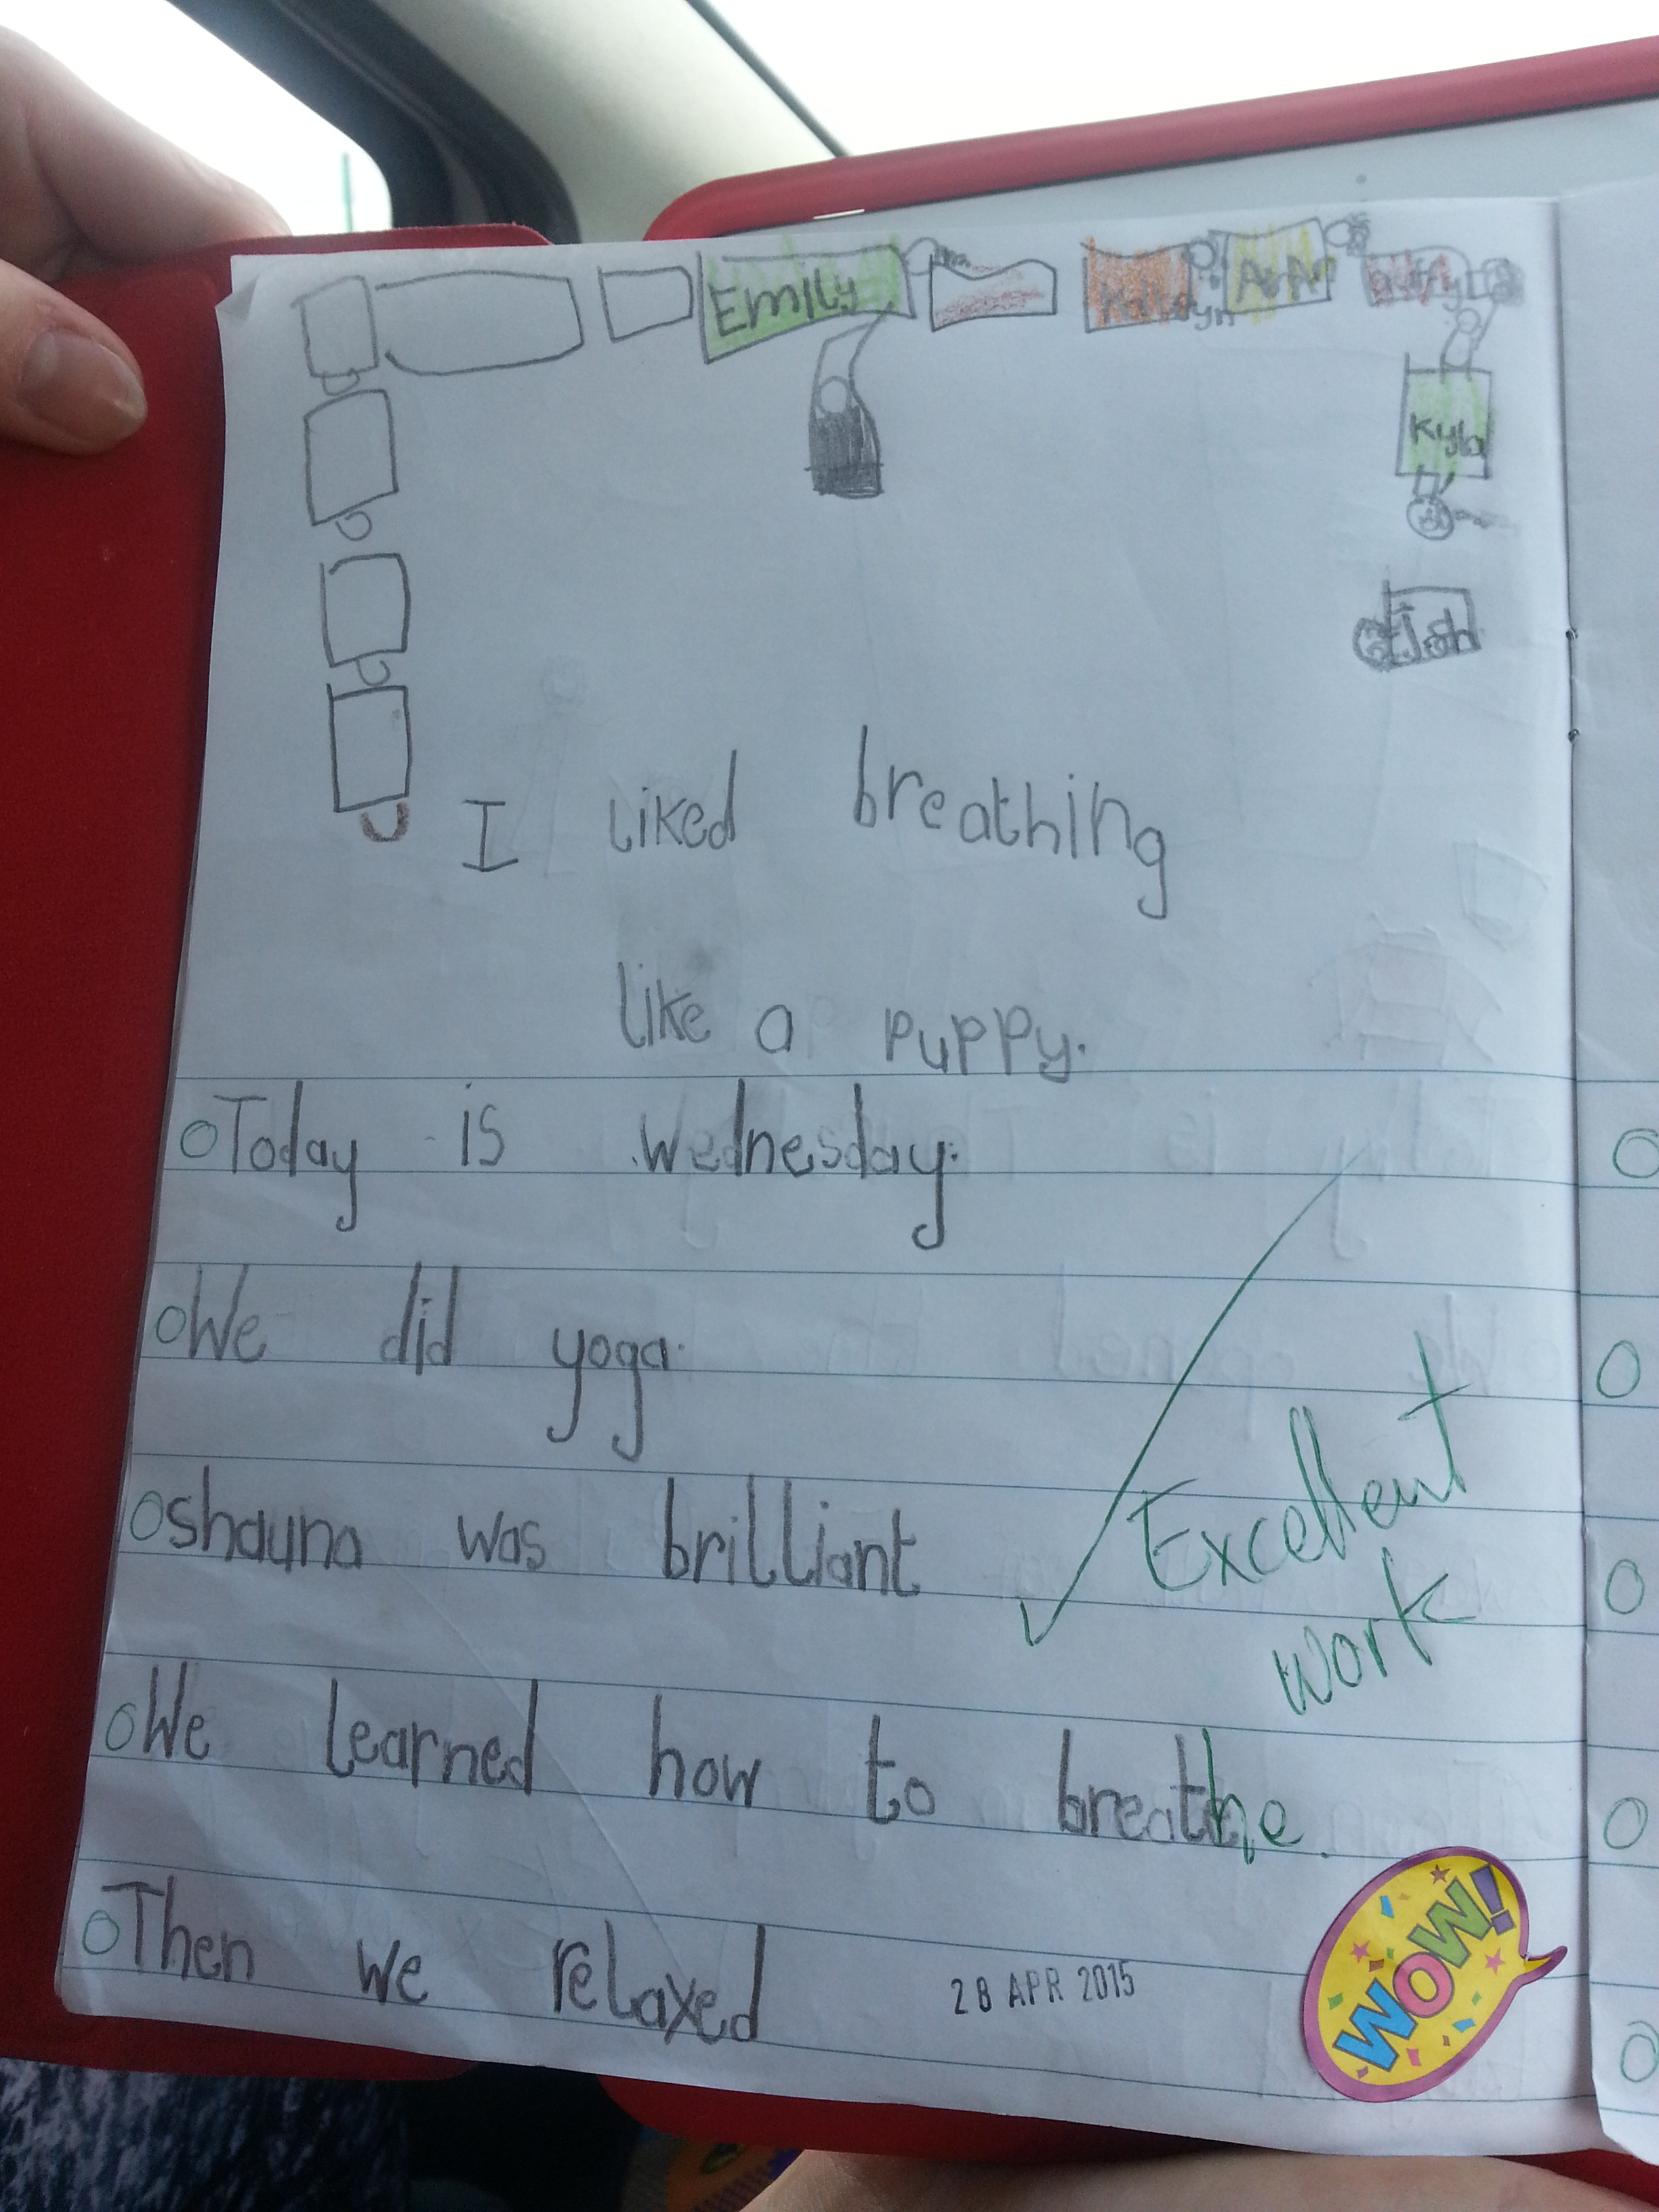 Emily
Kyla
I liked breathing
like a puppy.
Today is Wednesday.
We did yoga.
shauna was brilliant
Excellent
work
We learned how to breathe.
Then we relaxed
28 APR 2015
WOW!